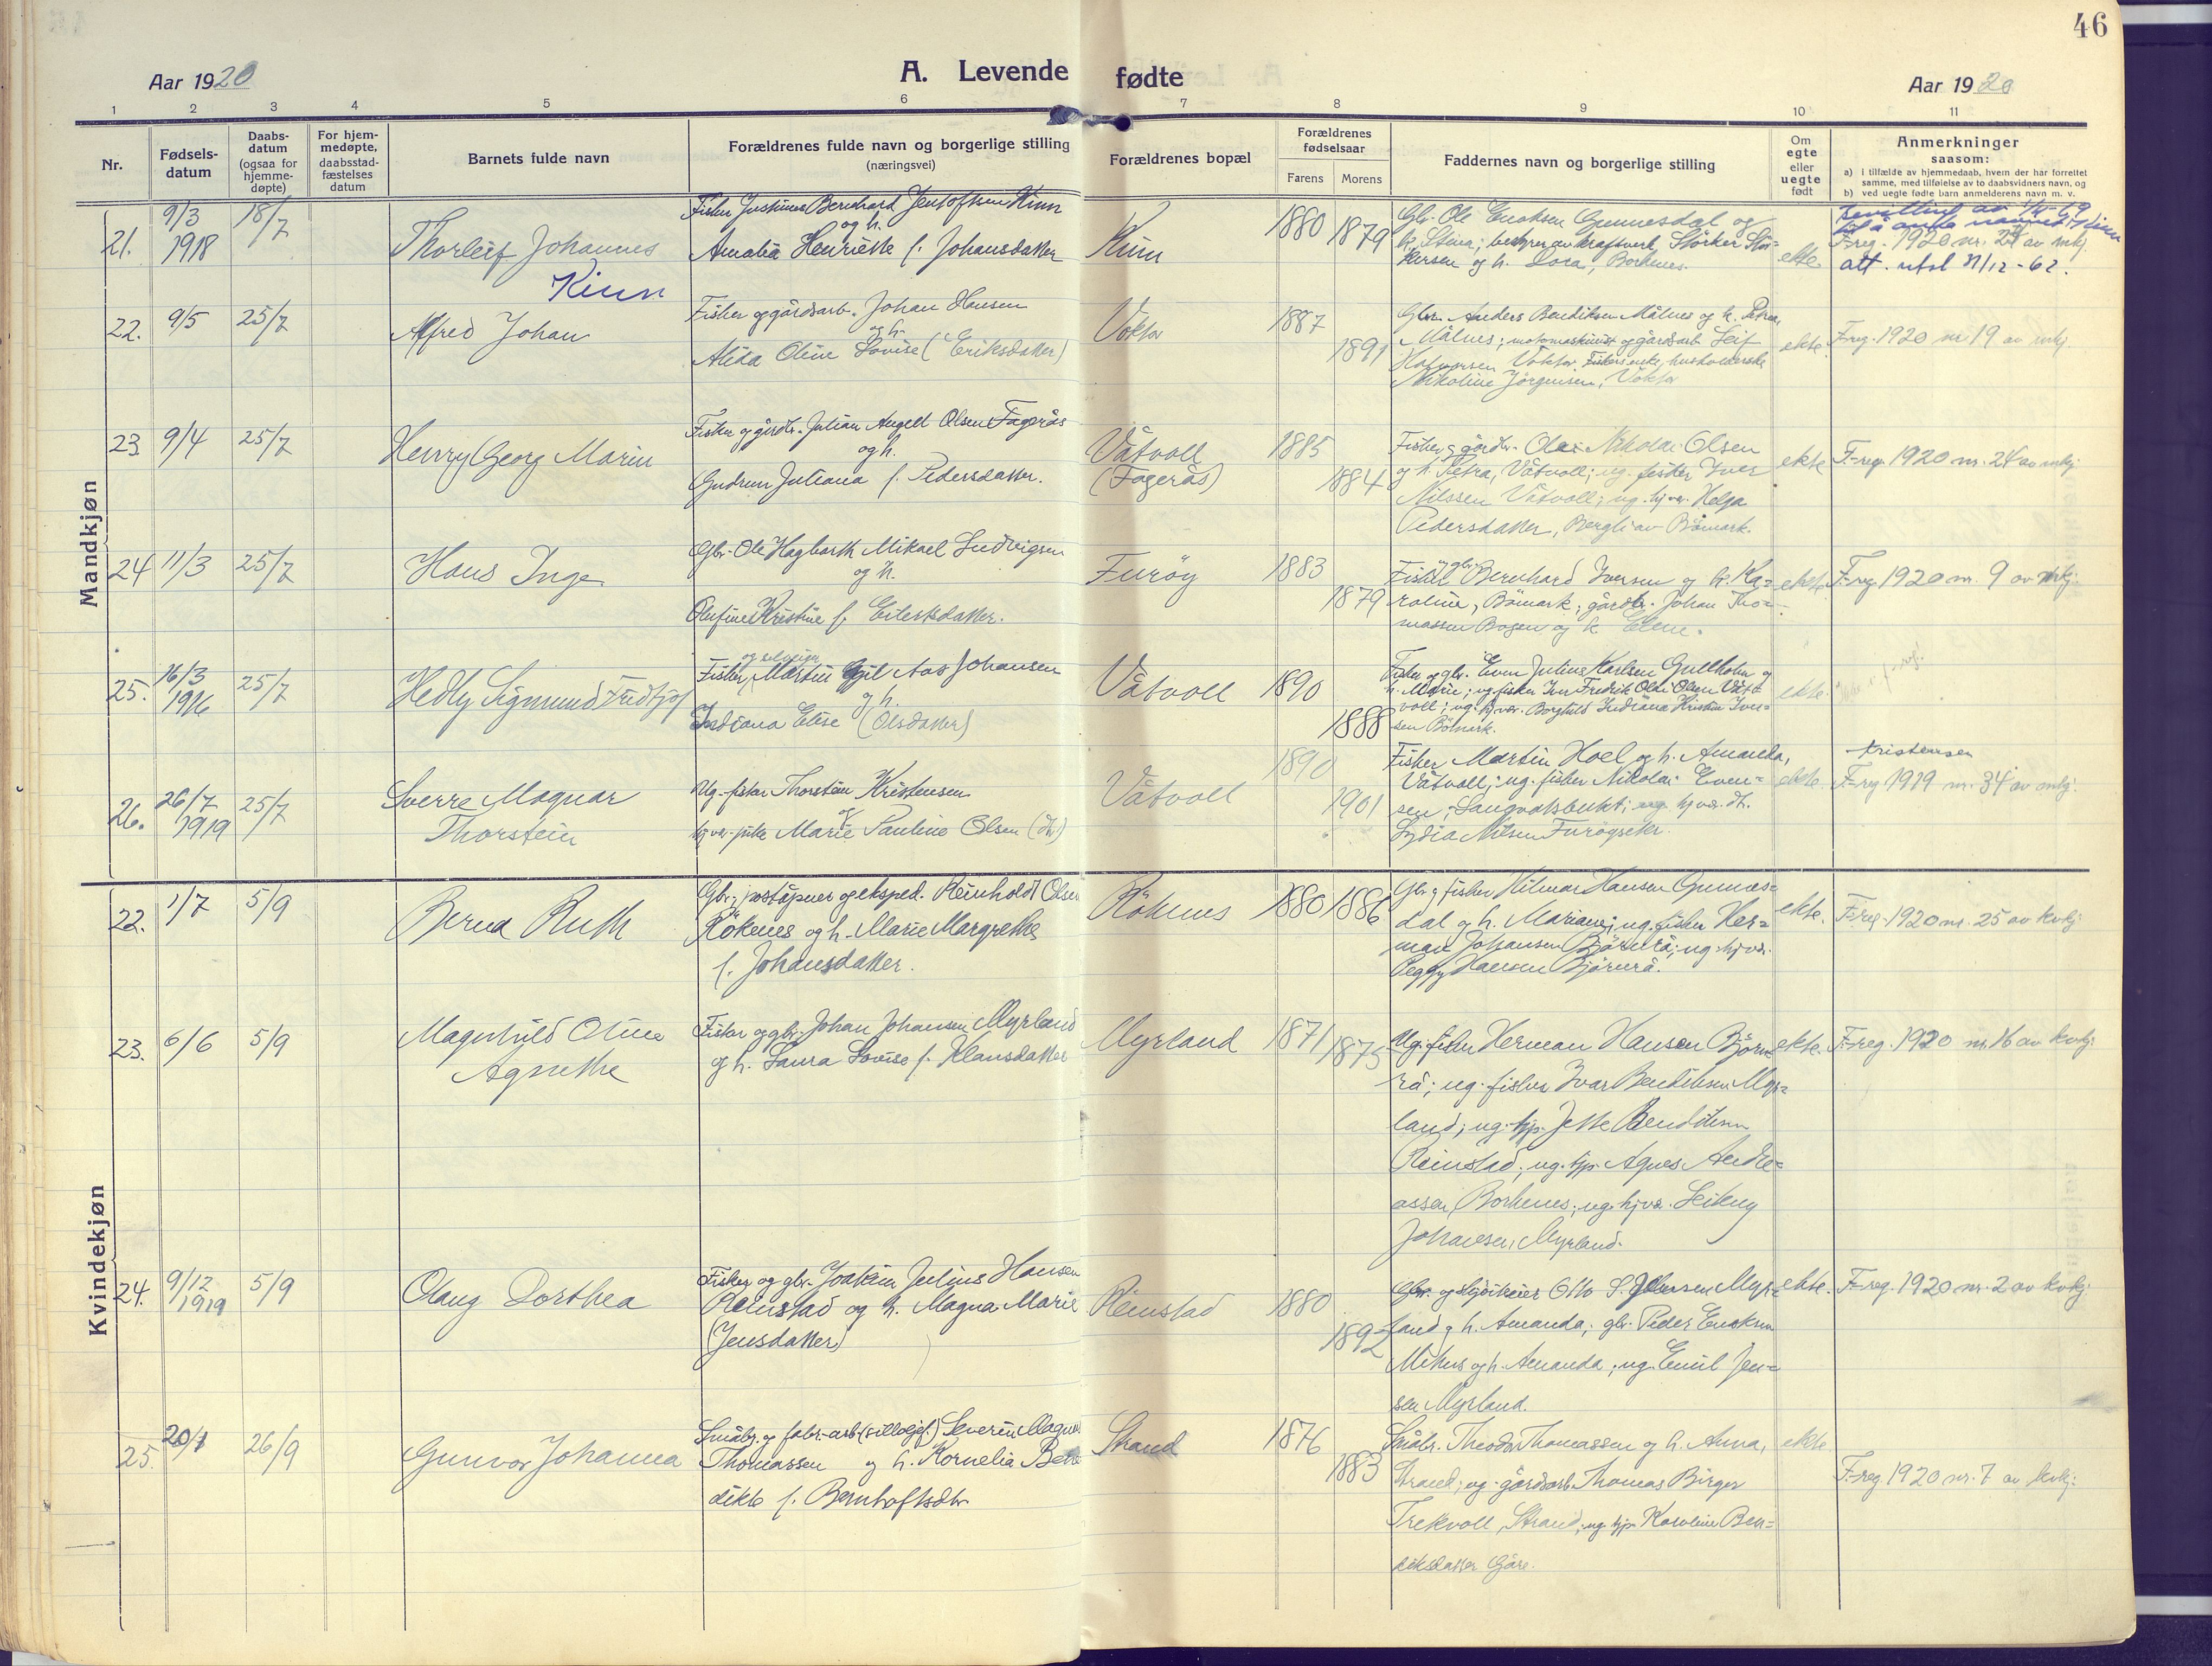 46
Aar 1920
A. Levende fødte
Aar 1920
1 2 3 4 5 6 7 8 9 10 11
Nr.
Fødsels-
datum
Daabs-
datum
(ogsaa for
hjemme-
døpte)
For hjem-
medøpte,
daabsstad-
fæstelses
datum
Barnets fulde navn
Forældrenes fulde navn og borgerlige stilling
(næringsvei)
Forældrenes bopæl
Forældrenes
fødselsaar
Farens Morens
Faddernes navn og borgerlige stilling
Om
egte
eller
uegte
født
Anmerkninger
saasom:
a) i tilfælde av hjemmedaab, hvem der har forrettet
samme, med tilføielse av to daabsvidners navn, og
b) ved uegte fødte barn anmelderens navn m. v.
Mandkjøn
21. 9/3 1918 18/7
Thorleif Johannes
Kinn
Fisker Justines Bernhard Jentoftsen Kinn
og h.
Amalia Henriette f. Johansdatter
Kinn
1880 1879
Gbr. Ole Enoksen Gunnesdal og
h. Stina; bestyrer av kraftverk, Störker Stör-
kersen og h. Dora, Borkenes.
ekte
F-reg. 1920 nr. 27 av mkj
att. utst 31/12-62.
22. 9/5 25/7
Alfred Johan
Fisker og gårdsarb. Johan Hansen
og h.
Alida Oline Lovise (Eriksdatter)
Voktor
1887 1891
Gbr. Anders Bendiksen Målnes og h. Petra,
Målnes; motormaskinist og gårdsarb Leif
Halvorsen Voktor, Fiskers enke, husholderske
Nikoline Jörgensen, Voktor
ekte.
F-reg. 1920 nr 19 av mkj.
23 9/4 25/7
Henry Georg Marin
Fisker og gårdbr. Julian Angell Olsen Fagerås
og h.
Gudrun Juliana f. Pedersdatter.
Våtvoll
(Fagerås)
1885 1884
Fisker og gårdbr. Ole Nikolai Olsen
og h. Petra, Våtvoll; ug. fisker Iver
Nilssen Våtvoll; ug. hj.vær. Helga
Pedersdatter, Bergli av Bömark.
ekte
F-reg. 1920 nr. 24 av mkj
24 11/3 25/7
Hans Inge
Gbr. Ole Hagbarth Mikael Ludvigsen
og h.
Olufine Kristine f. Eilertsdatter.
Furöy
1883 1879
Fisker og gbr. Bernhard Iversen og h. Ka-
roline, Bömark; gårdbr. Johan Tho-
massen Bogen og h. Elene.
ekte
F-reg. 1920 nr. 9 av mkj.
25. 16/3 1916 25/7
Hedly Sigmund Fridtjof
og selveier
Fisker, Martin Egil Aas Johansen
og h.
Indiana Elise (Olsdatter)
Våtvoll
1890 1888
Fisker og gbr. Even Julius Karlsen Gullholm og
h. Marie; ug. fisker Iver Fredrik Olai Olsen Våt-
voll; ug. hj.vær. Borghild Indiana Kristine Iver-
sen Bömark.
ekte.
26. 26/7 1919 25/7
Sverre Magnar
Thorstein
Ug. fisker Thorstein Kristensen
og
hj.vær. pike Marie Pauline Olsen
Våtvoll
1890 1901
Fisker Martin Hoel og h. Amanda,
Våtvoll; ug. fisker Nikolai Even-
sen, Langvatsbukt; ug. hj.vær. dt.
Lydia Nilsen Furöyseter.
ekte.
Kristensen
F-reg 1919 nr. 34 av mkj.
Kvindekjøn
22. 1/7 5/9
Berna Ruth
Gbr., poståpner og eksped. Reinholdt Olsen
Rökenes og h. Marie Margrethe
f. Johansdatter.
Rökenes
1880 1886
Gbr. og fisker Hilmar Hansen Gunnes-
dal og h. Mariane; ug. fisker Her-
man Johansen Björnrå; ug. hj.vær.
Peggy Hansen Björnrå.
ekte.
F-reg. 1920 nr. 25 av kvkj
23. 6/6 5/9
Magnhild Oline
Agnethe
Fisker og gbr. Johan Johansen Myrland
og h. Laura Lovise f. Klausdatter
Myrland
1871 1875
Ug. fisker Herman Hansen Björn-
rå; ug. fisker Ivar Bendiksen Myr-
land; ug. tjp. Jette Bendiksen
Reinstad; ug. tjp. Agnes Andre-
assen, Borkenes; ug. hj.vær. Leikny
Johansen, Myrland.
ekte.
F-reg. 1920 nr. 16 av kvkj.
24. 9/12 1919 5/9
Olaug Dorthea
Fisker og gbr. Joakim Julius Hansen
Reinstad og h. Magna Marie
(Jensdatter)
Reinstad
1880 1892
Gbr. og Otto S. Jensen Myr-
land og h. Amanda; gbr. Peder Enoksen
Mitnes og h. Amanda; ug. Emil Jen-
sen Myrland.
ekte.
F-reg. 1920 nr. 2 av kvkj
25. 20/1 26/9
Gunvor Johanna
Småbr. og fabr.-arb. (sildoljef.) Severin Magnus
Thomassen og h. Kornelia Bene
dikte f. Bernhoftsdtr
Strand
1876 1883
Småbr. Theodor Thomassen og h. Anna,
Strand; ug. gårdsarb. Thomas Birger
Trekvoll, Strand; ug. tjp. Karoline Ben-
diksdatter Gåre.
ekte
F-reg 1920 nr. 7 av kvkj.